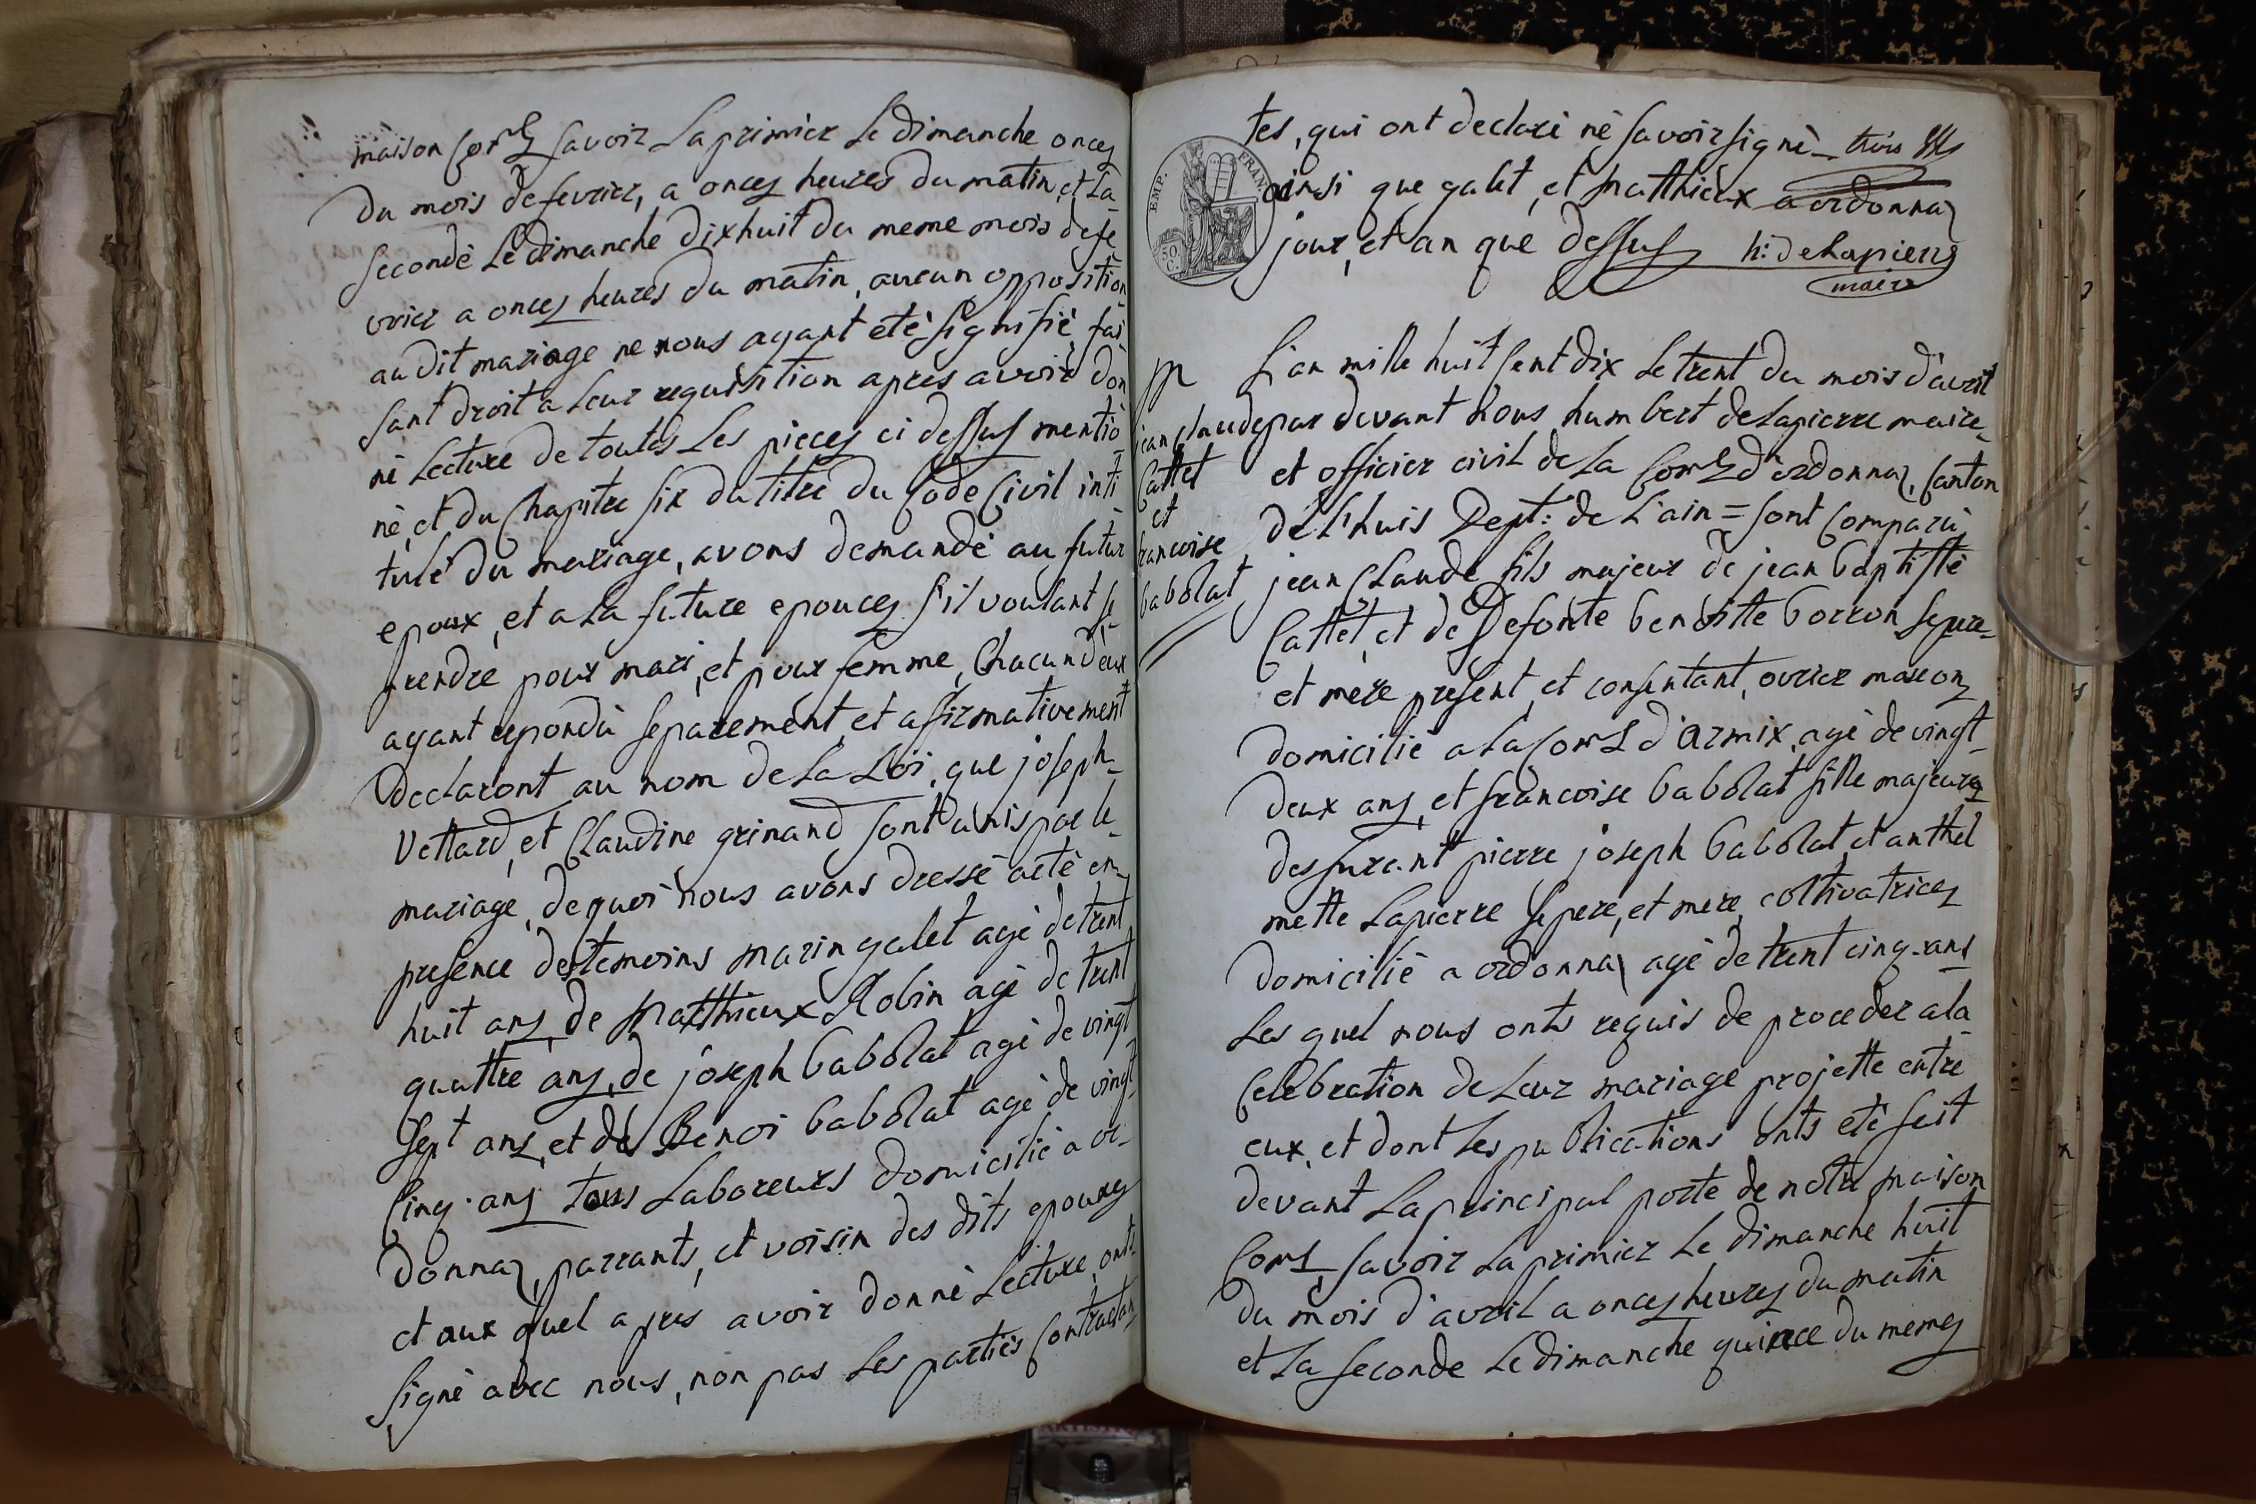 maison Com^e savoir la primier le dimanche onces
du mois de fevrier, a onces heures du matin, et la
secondè le dimanche dixhuit du meme mois de fe
vrier a onces heures du matin, aucun opposition
au dit mariage ne nous ayant étè signifiè, fai
sant droit a leur requisition apres avoir don
nè lecture de toutes les pieces ci dessus mentio
nè, et du Chapitre six du titre du Code Civil inti
tulé du mariage, avons demandè au futur
epoux, et a la future epouces s'il voulant se
prendre pour mari, et pour femme, Chacun d'eux
ayant repondù separement, et affirmativement
declaront au nom de la Loi, que joseph
Vettard, et Claudine grinand sont unis par le
mariage, de quoi nous avons dressè actè en
presence des temoins marin galet agè de trent
huit ans, de Matthieux Robin agè de trent
quattre ans, de joseph babolat agè de vingt
sept ans, et de Benoi babolat agè de vingt
Cinq ans tous laboreurs domiciliè a or
donnaz, parrants, et voisin des dits epouxs
et aux quel apres avoir donnè lecture, onts
signè avec nous, non pas les partiès Contractan
tes, qui ont declarè nè savoir signè trois
EMP. FRAN
50 C.
ainsi que galet, et Matthieux a ordonnaz
jour, et an que dessus h: delapierre
maire
M
jean Claude
Cattet
et
francoise
babolat
L'an mille huit sent dix le trent du mois d'avril
par devant nous humbert delapierre maire
et officier civil de la Com^e d'ordonnaz, Canton
de l'huis Dept: de l'ain = sont Comparù
jean Claude fils majeur de jean baptistè
Cattet, et de defonte benoitte borron se pere
et mere present, et consentant, ovrier maxon
domiciliè a la Com^e d'Armix, agè de vingt
deux ans, et francoise babolat fille majeure
des furant pierre joseph babolat et anthel
mette lapierre se pere, et mere, coltivatrices
domiciliè a ordonnaz agè de trent cinq ans
Les quel nous onts requis de proceder a la
Celebration de leur mariage projette entre
eux, et dont les publications onts etè fait
devant la principal porte de notre maison
Com^e savoir la primier le dimanche huit
du mois d'avril a onces heures du matin
et la seconde le dimanche quince du memes